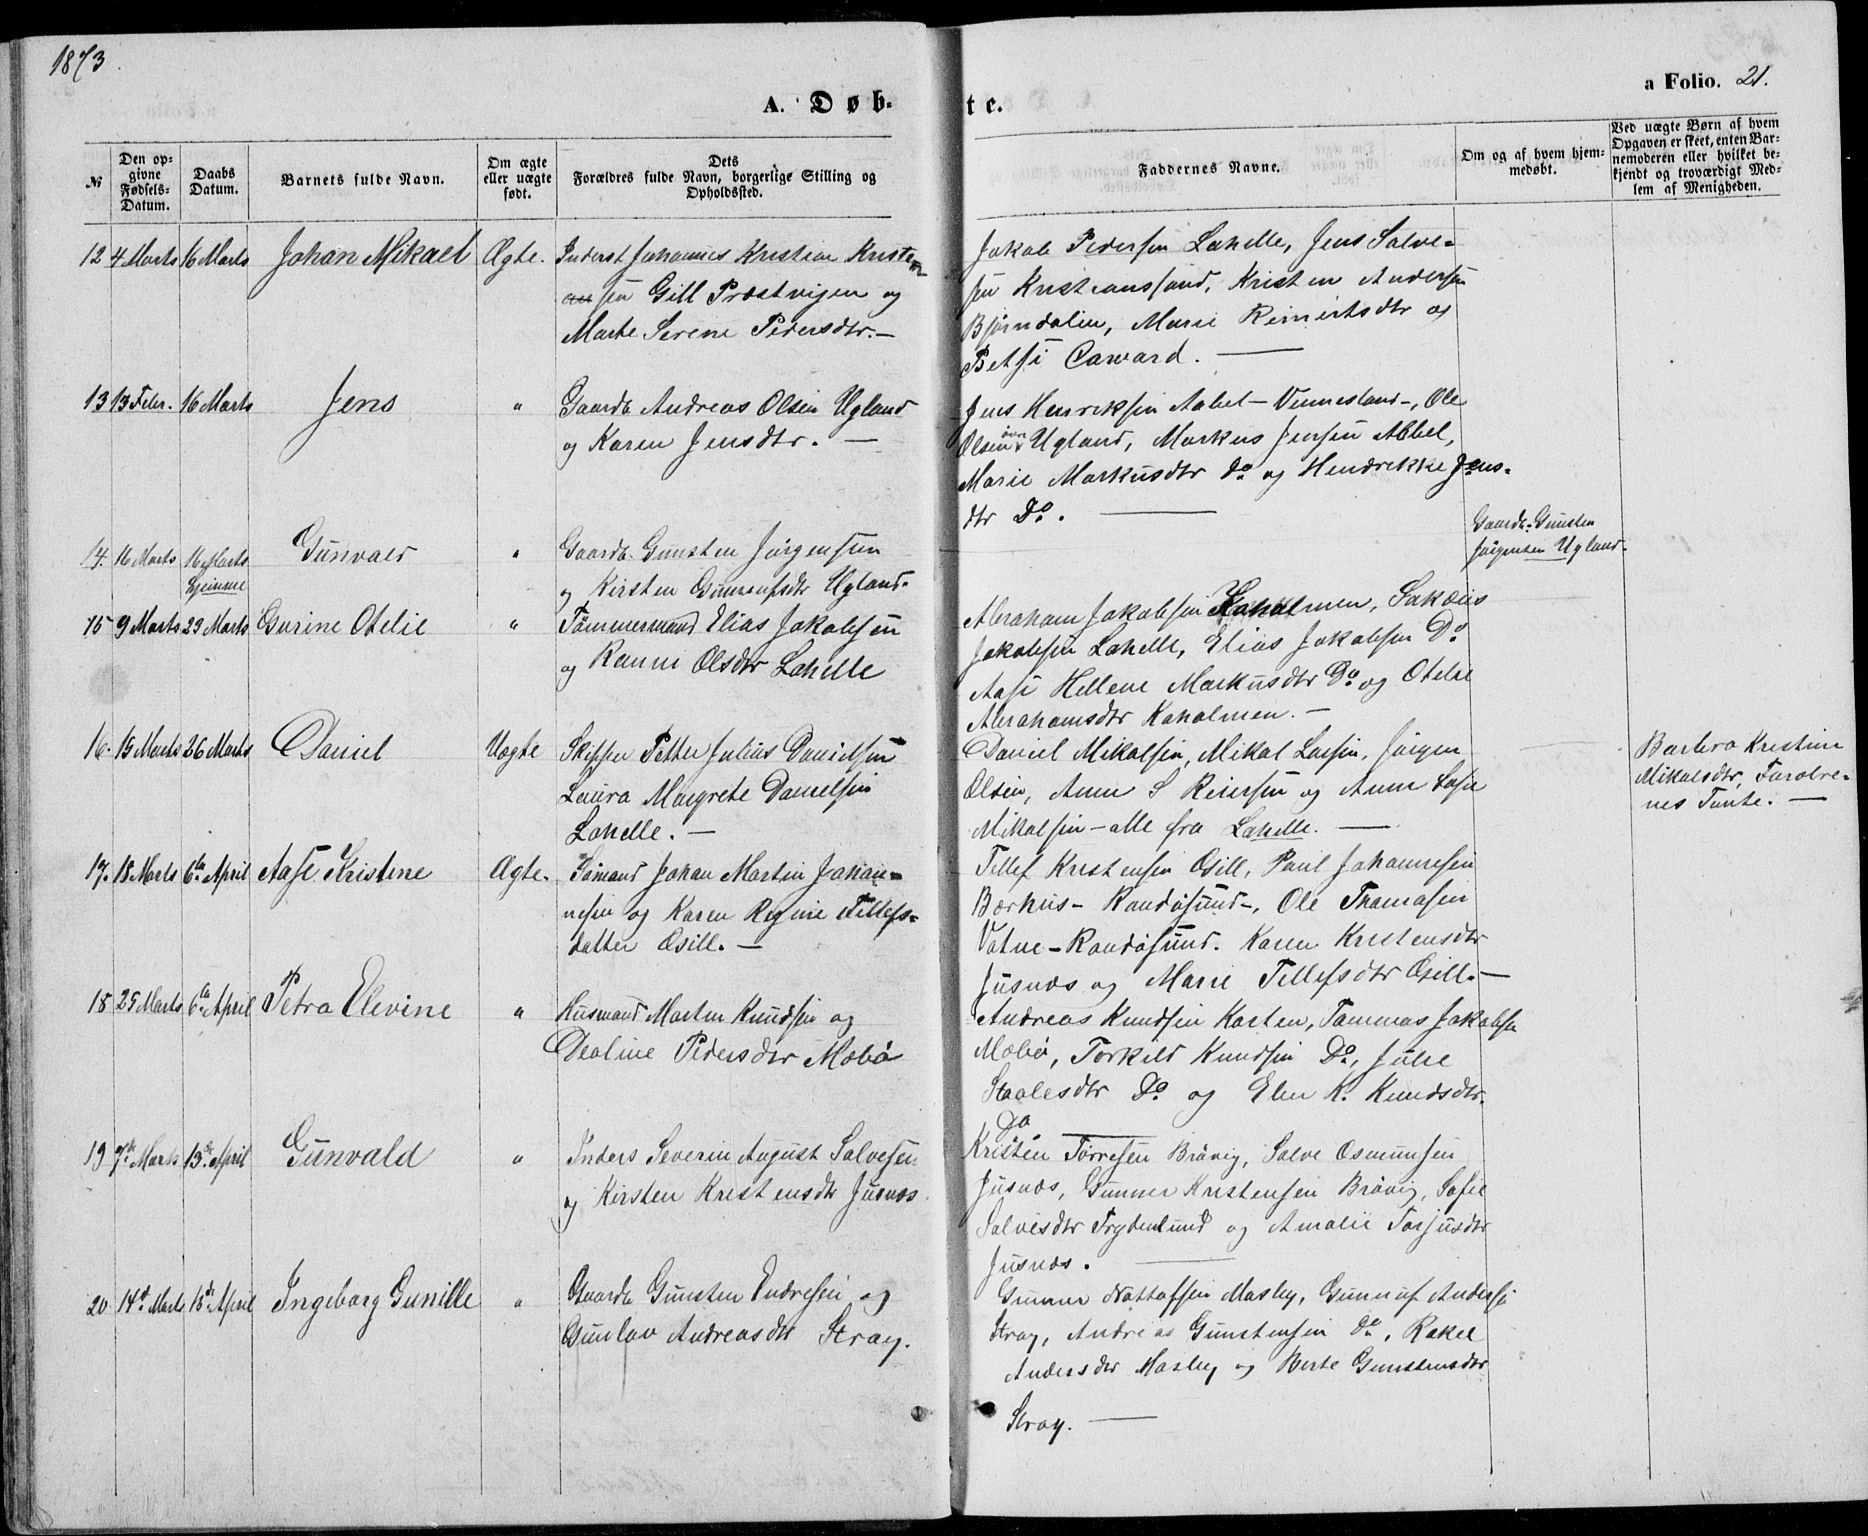 1873
a Folio. 21.
A. Døb-
te.
№
Den op-
givne
Fødsels-
Datum.
Daabs
Datum.
Barnets fulde Navn.
Om ægte
eller uægte
født.
Dets
Forældres fulde Navn, borgerlige Stilling og
Opholdssted.
Faddernes Navne.
Om og af hvem hjem-
medøbt.
Ved uægte Børn af hvem
Opgaven er skeet, enten Bar-
nemoderen eller hvilket be-
kjendt og troværdigt Med-
lem af Menigheden.
12 4 Marts 16 Marts Johan Mikael Ægte. Inderst Johannes Kristian Kristen
sen Gill Præstvigen og
Marte Serene Pedersdtr. —
Jakob Pedersen Lahelle, Jens Salve-
sen Kristianssand, Kristen Andersen
Bjørndalen, Marie Reinertsdtr og
Betsi Caward. —
13 13 Febr. 16 Marts Jens " Gaardb. Andreas Olsen Ugland
og Karen Jensdtr. —
Jens Henriksen Aabel - Vennesland -, Ole
Olsen Ugland, Markus Jensen Abbel,
Marie Markusdtr Do og Hendrikke Jens-
dtr Do. —
14. 16 Marts 16 Marts Gunvald " Gaardb. Gunsten Jørgensen
hjemme
og Kirsten Gunnufsdtr Ugland.
Gaardb. Gunsten
Jørgensen Ugland.
15 9 Marts 23 Marts Gurine Otelie " Tømmermand Elias Jakobsen
og Ranni Olsdtr Lahelle
Abraham Jakobsen Kaholmen, Sakæus
Jakobsen Lahelle, Elias Jakobsen Do
Aase Hellene Markusdtr Do og Otelie
Abrahamsdtr Kaholmen. —
16. 15 Marts 26 Marts Daniel Uægte Skipper Petter Julius Danielsen
Laura Margrete Danielsen
Lahelle. —
Daniel Mikalsen, Mikal Larsen, Jørgen
Olsen, Anne S Reiersen og Anne Sofie
Mikalsen - alle fra Lahelle. —
Barbra Kristine
Mikalsdtr, Forældre-
nes Tante. —
17. 18 Marts 6te April Aase Kristine Ægte. Sømand Johan Martin Johan-
nesen og Karen Regine Tellefs-
datter Gill. —
Tellef Kristensen Gill, Paul Johannesen
Bærhus - Randøsund -, Ole Thomasen
Vatne - Randøsund. Karen Kristensdtr
Jusnæs og Marie Tellefsdtr Gill. —
18 25 Marts 6te April Petra Elevine " Husmand Morten Knudsen og
Deoline Pedersdtr Mæbø
Andreas Knudsen Korten, Tommas Jakobsen
Mæbø, Torkild Knudsen Do, Julie
Staalesdtr Do og Elen K. Knudsdtr.
Do
19 7de Marts 13de April Gunvald " Inders Severin August Salvesen
og Kirsten Kristensdtr Jusnæs.
Kristen Torresen Brøvig, Salve Osmundsen
Jusnæs, Gunner Kristensen Brøvig, Sofie
Salvesdtr Frydenlund og Amalie Torjusdtr
Jusnæs. —
20 14de Marts 15de April Ingeborg Gunille " Gaardb. Gunsten Endresen og
Gunlov Andreasdtr Stray.
Gunner Nottolfsen Mosby, Gunnuf Andersen
Stray, Andreas Gunstensen Do, Rakel
Andersdtr Mosby og Berte Gunstensdtr
Stray. —